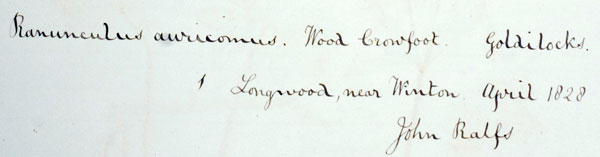 Ranunculus auricomus. Wood Crowfoot. Goldilocks.
1 Longwood, near Winton. April 1828
John Ralfs